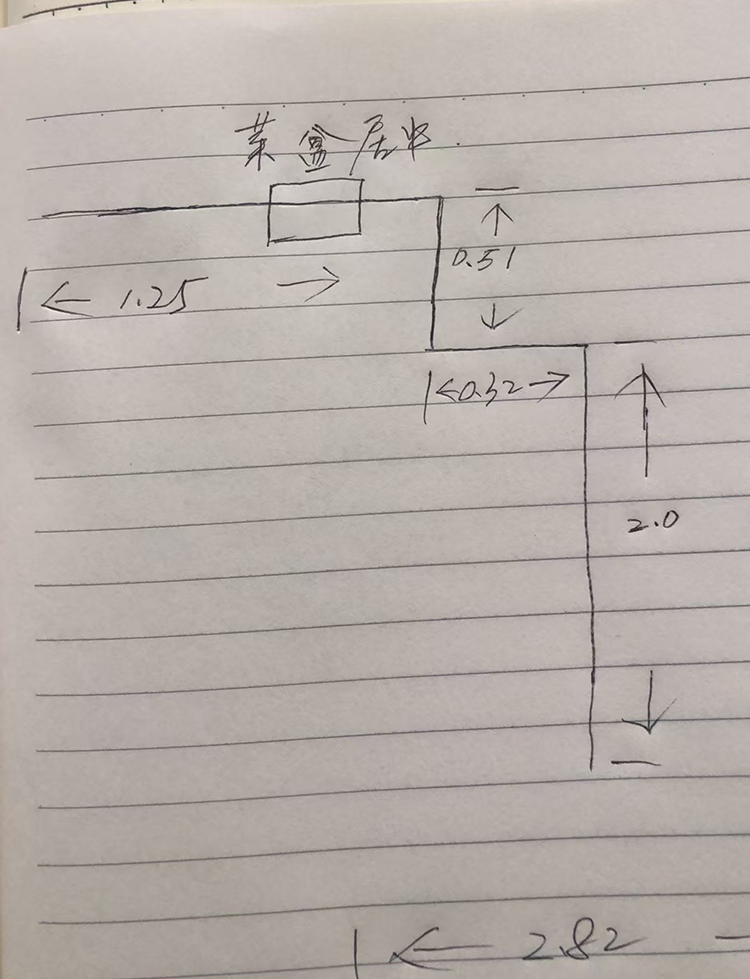 菜盒居中.
0.51
1.25
0.32
2.0
2.82